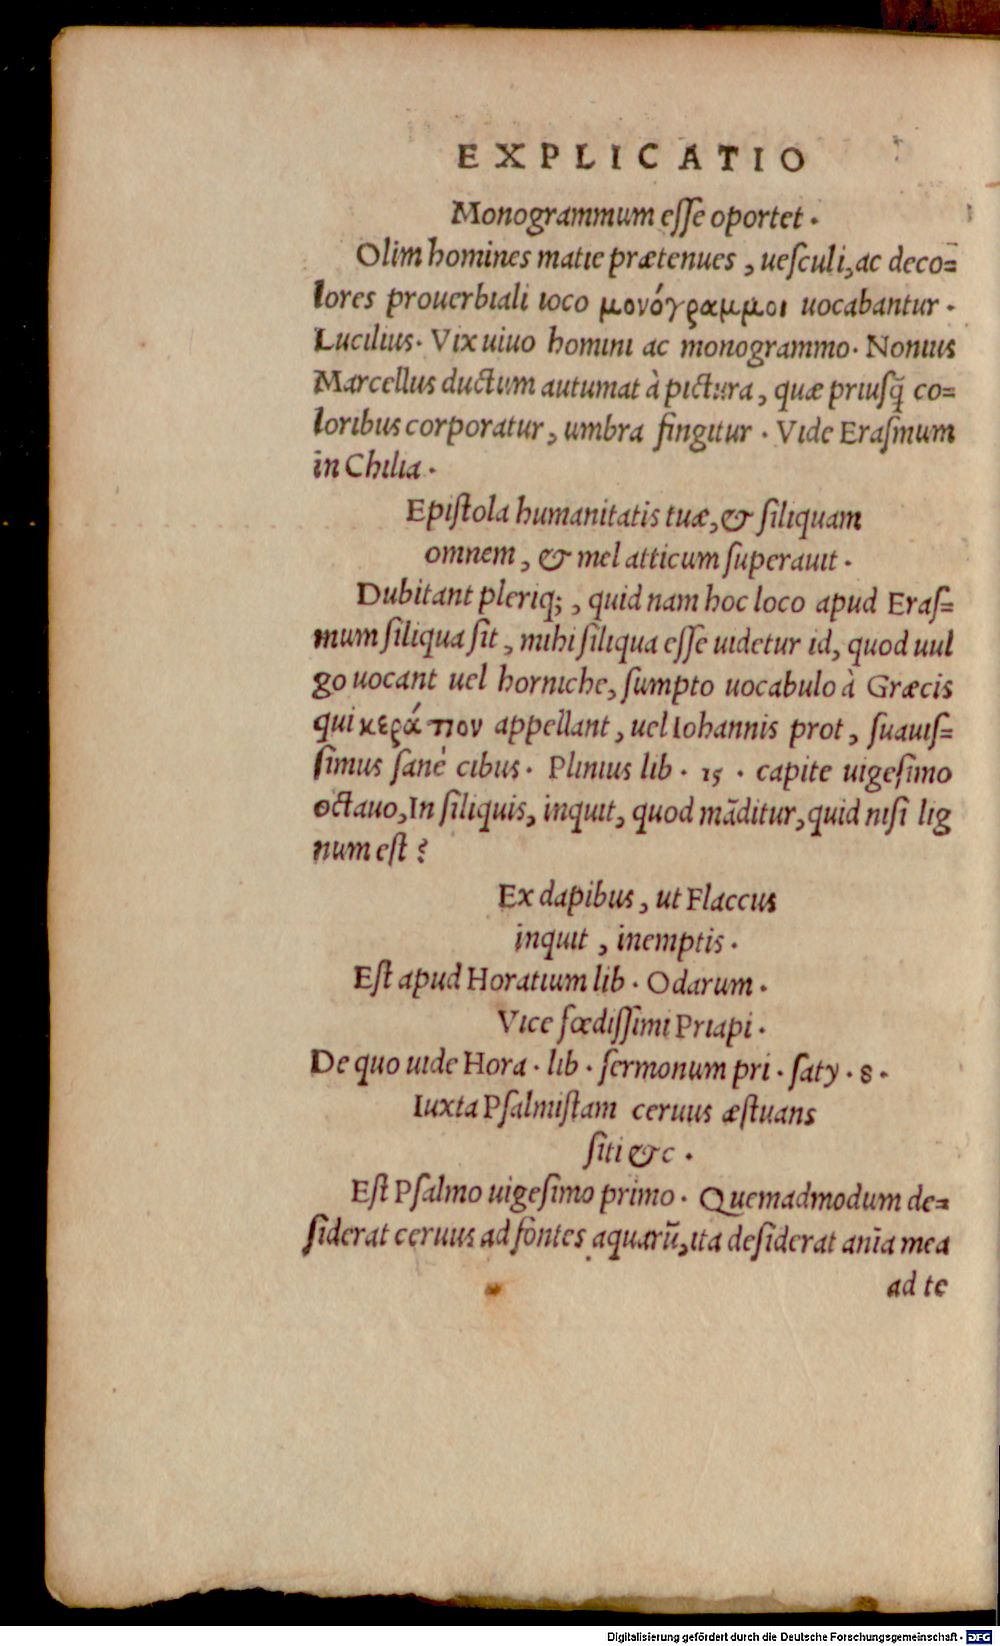 EXPLICATIO
Monogrammum eſſe oportet .
Olim homines matie prætenues , ueſculi, ac deco⸗
lores prouerbiali ioco μονόγραμμοι uocabantur .
Lucilius. Vix uiuo homini ac monogrammo. Nonius
Marcellus ductum autumat à pictura , quæ priuſq̃ co⸗
loribus corporatur , umbra fingitur . Vide Eraſmum
in Chilia .
Epiſtola humanitatis tuæ, & ſiliquam
omnem , & mel atticum ſuperauit .
Dubitant pleriq; , quid nam hoc loco apud Eraſ⸗
mum ſiliqua ſit , mihi ſiliqua eſſe uidetur id, quod uul
go uocant uel horniche, ſumpto uocabulo à Græcis
qui κεράτιον appellant , uel Iohannis prot , ſuauiſ⸗
ſimus ſanè cibus . Plinius lib . 15 . capite uigeſimo
octauo, In ſiliquis, inquit, quod mãditur, quid niſi lig
num eſt ?
Ex dapibus , ut Flaccus
inquit , inemptis .
Eſt apud Horatium lib . Odarum .
Vice fœdiſſimi Priapi .
De quo uide Hora . lib . ſermonum pri . ſaty . 8 .
Iuxta Pſalmiſtam ceruus æſtuans
ſiti &c .
Eſt Pſalmo uigeſimo primo . Quemadmodum de⸗
ſiderat ceruus ad fontes aquarũ, ita deſiderat anĩa mea
ad te
Digitalisierung gefördert durch die Deutsche Forschungsgemeinschaft - DFG